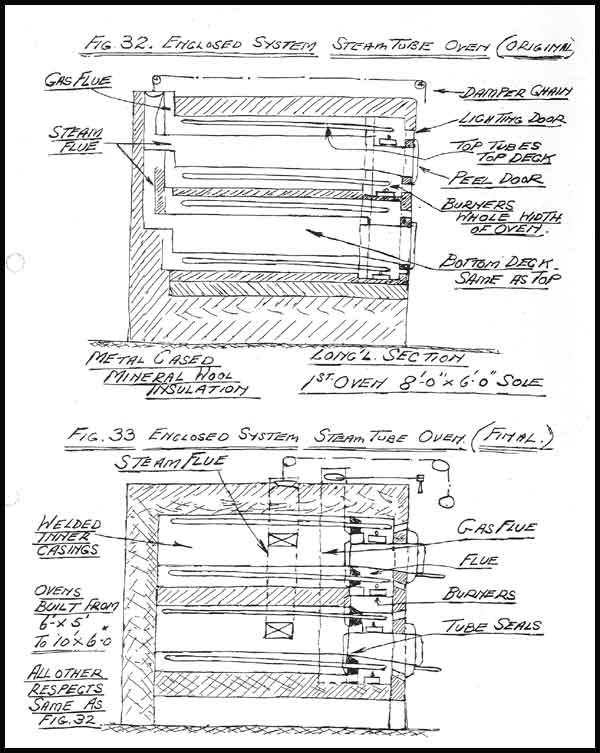 FIG. 32. ENCLOSED SYSTEM STEAM TUBE OVEN (ORIGINAL)
GAS FLUE
DAMPER CHAIN
LIGHTING DOOR
STEAM
FLUE
TOP TUBES
TOP DECK
PEEL DOOR
BURNERS
WHOLE WIDTH
OF OVEN.
BOTTOM DECK
SAME AS TOP
METAL CASED
MINERAL WOOL
INSULATION
LONG'L. SECTION
1ST OVEN 8'-0" x 6'-0" SOLE
FIG. 33 ENCLOSED SYSTEM STEAM TUBE OVEN. (FINAL.)
STEAM FLUE
WELDED
INNER
CASINGS
GAS FLUE
FLUE
OVENS
BUILT FROM
6' x 5'
TO 10' x 6'-0"
BURNERS
TUBE SEALS
ALL OTHER
RESPECTS
SAME AS
FIG. 32